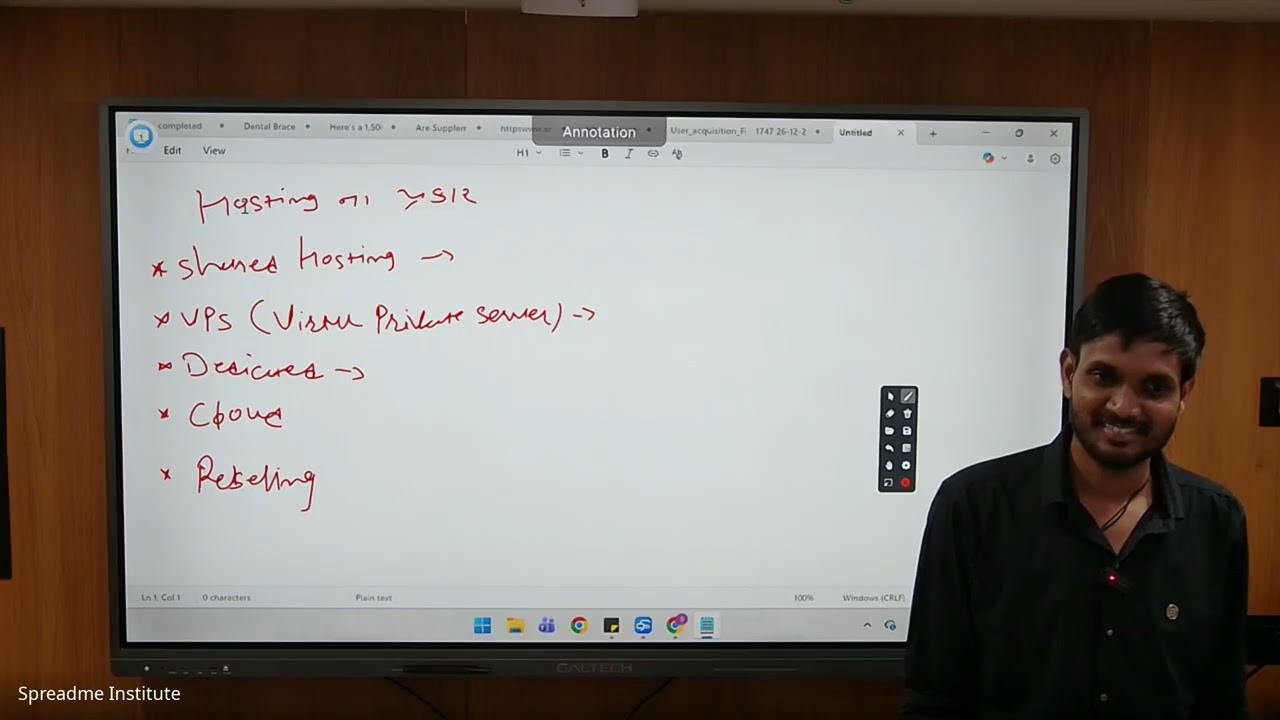 completed Dental Brace Here's a 1,50 Are Supplem Annotation User_acquisition_Fi 1747 26-12-2 Untitled
Edit View H1 B I
Hosting
* Shared Hosting →
* VPS (Virtu Private Server) →
* Dedicated →
* Cloud
* Reselling
Ln 1, Col 1 0 characters Plain text 100% Windows (CRLF)
GALTECH
Spreadme Institute